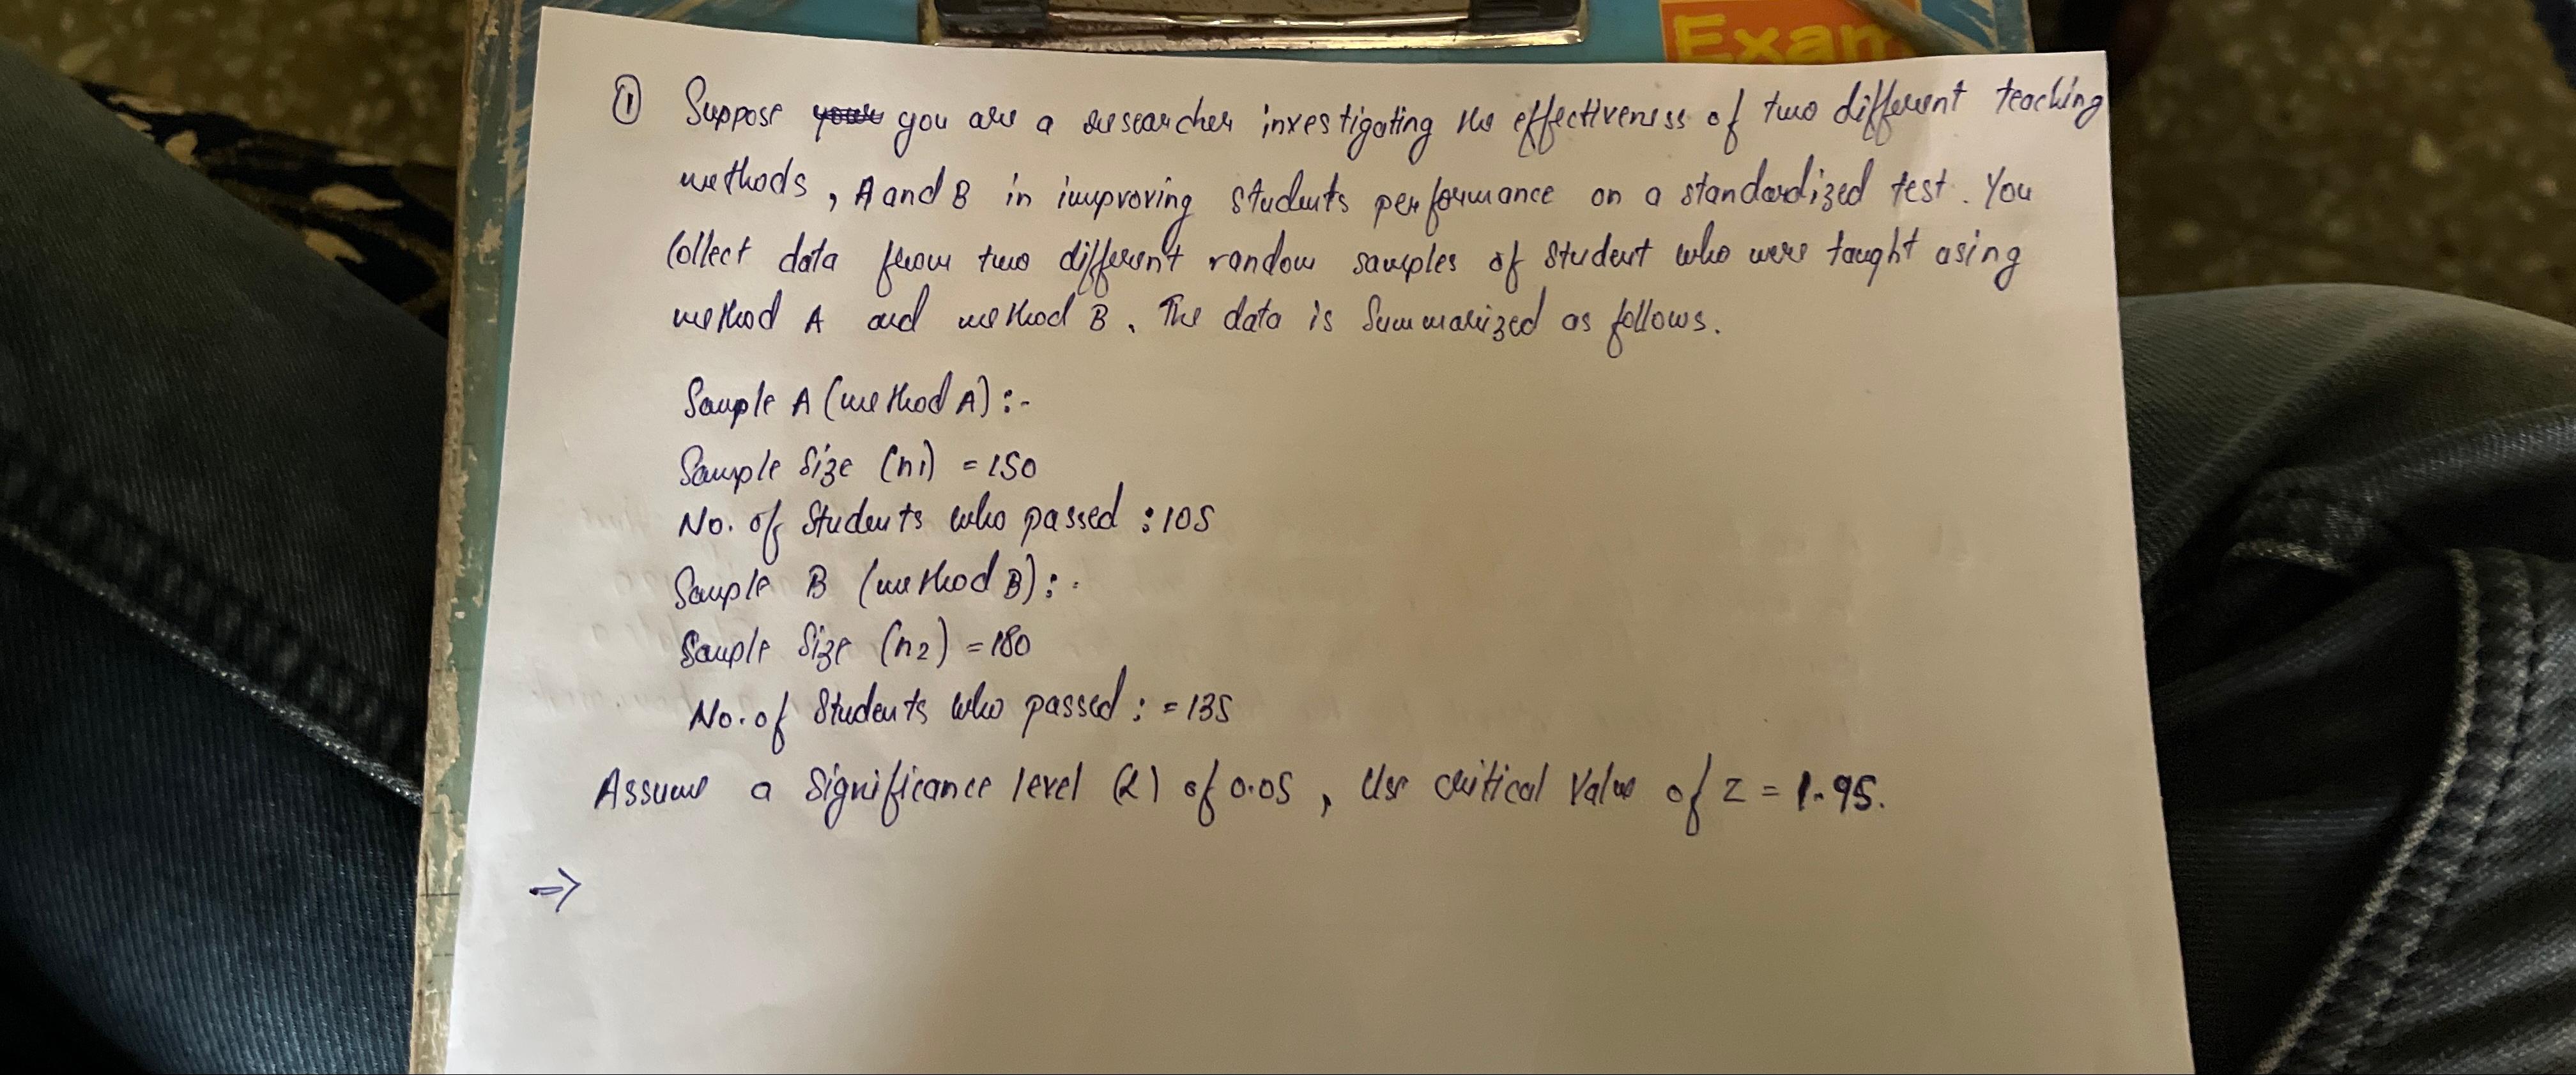 Exam
① Suppose you are a researcher investigating the effectiveness of two different teaching
methods, A and B in improving students performance on a standardized test. You
Collect data from two different random samples of student who were taught asing
method A and method B. The data is Summarized as follows.
Sample A (method A) :-
Sample Size (n1) = 150
No. of Students who passed : 105
Sample B (method B) :-
Sample Size (n2) = 180
No. of Students who passed : = 135
Assume a Significance level (α) of 0.05, Use critical Value of Z = 1.95.
⇒